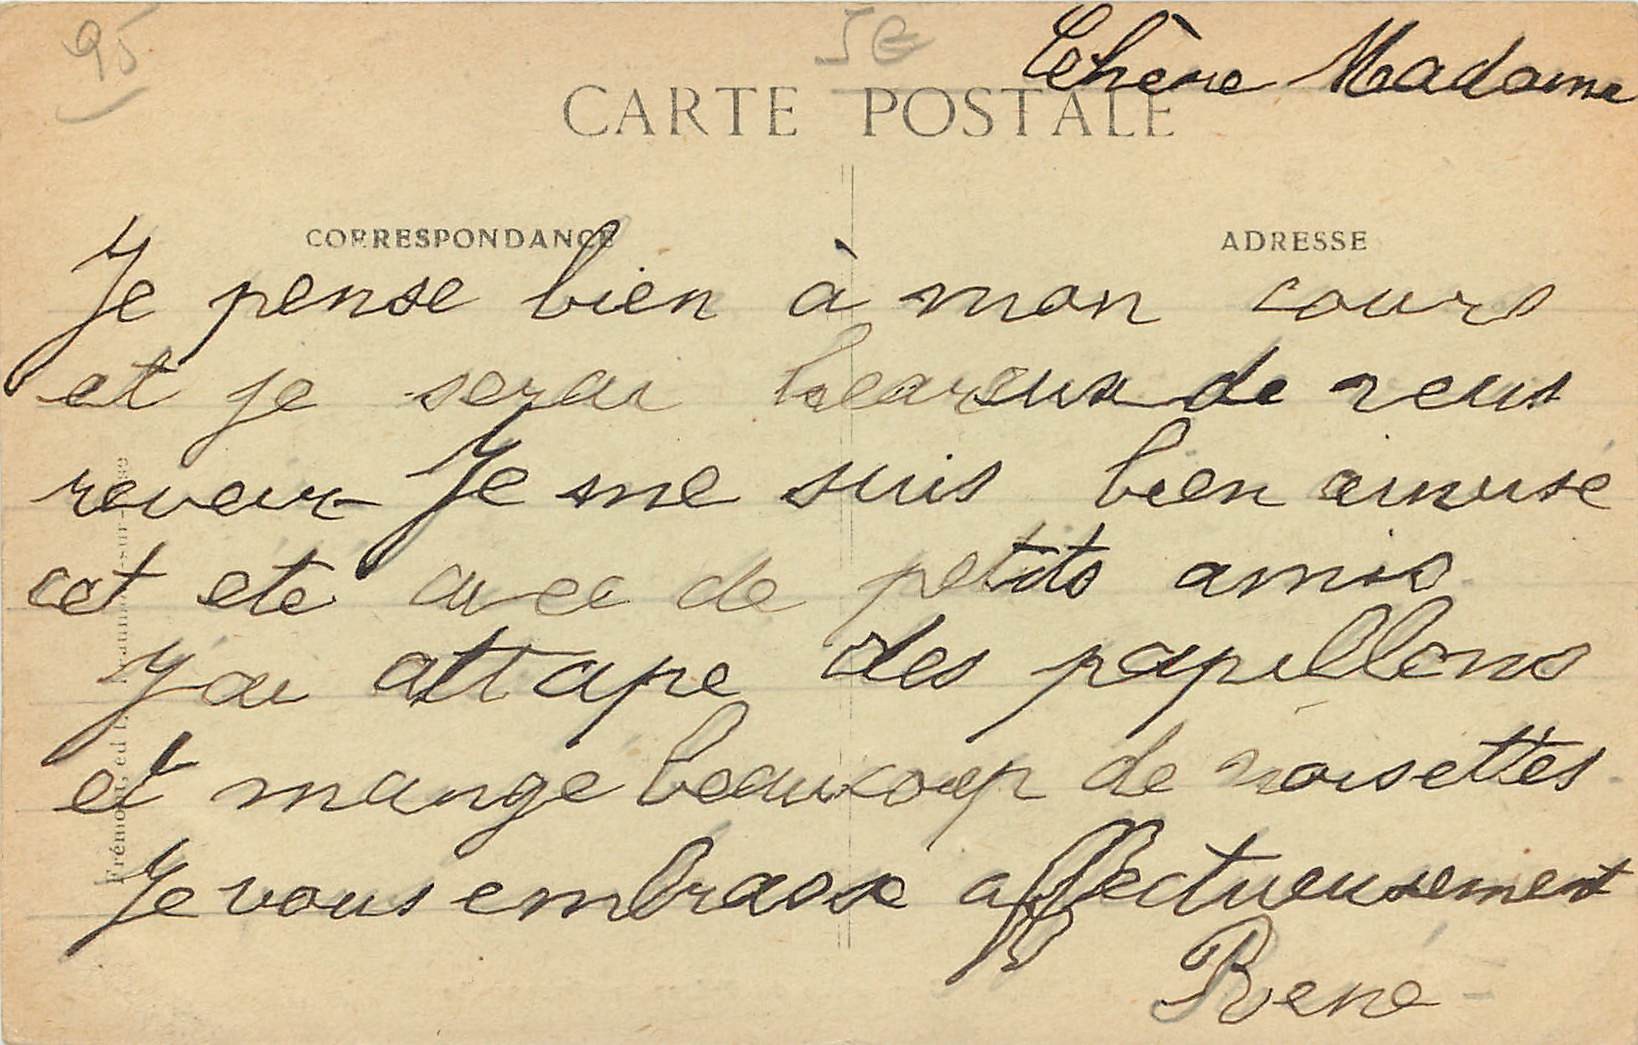 95
Chère Madame
CARTE POSTALE
CORRESPONDANCE
ADRESSE
Je pense bien à mon cours
et je serai heureux de vous
revoir Je me suis bien amuse
cet ete avec de petits amis
J ai attape des papillons
et mange beaucoup de noisettes
Je vous embrasse affectueusement
René
Frémon, éd